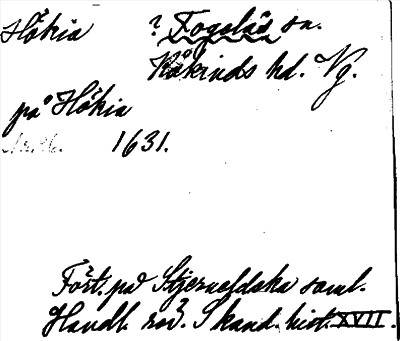 Hökia ? Fogelås sn.
Kåkinds hd. Vg.
på Hökia
1631.
Fört. på Stjerneldska saml.
Handl. rör. Skand. hist. XVII.